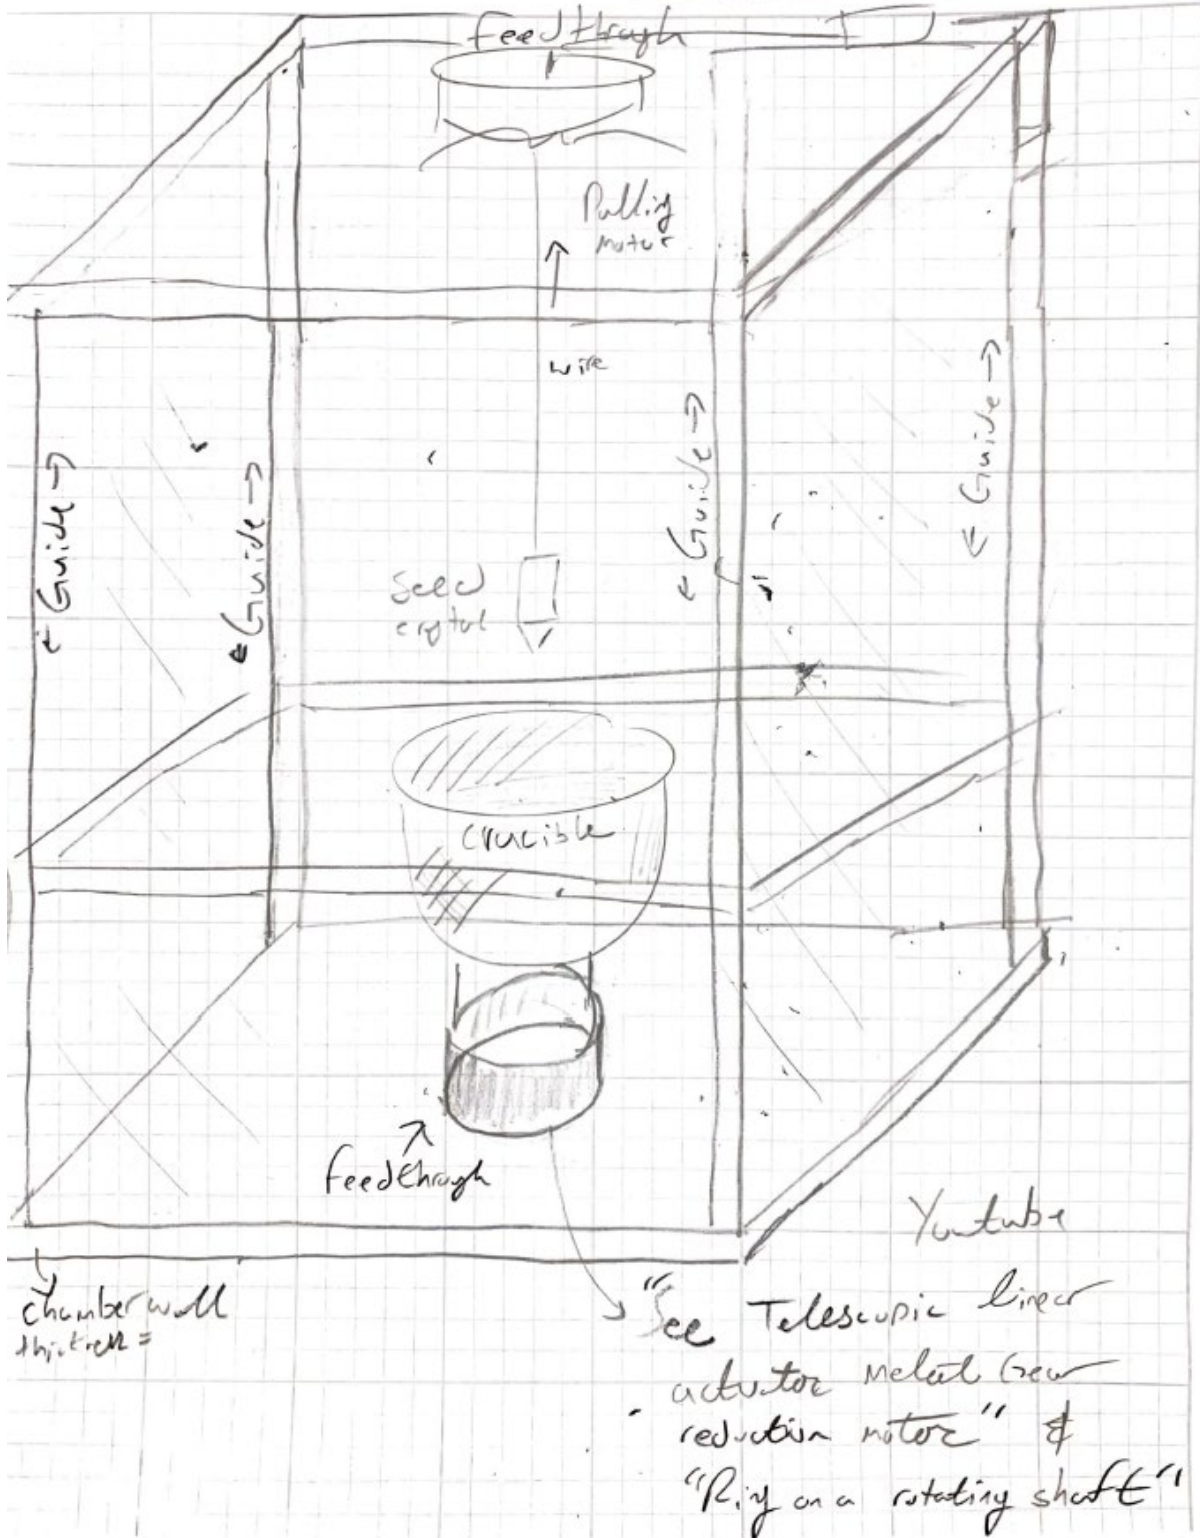 Feedthrough
Pulling
motor
wire
← Guide →
← Guide →
← Guide →
← Guide →
Seed
crystal
Crucible
Feedthrough
Youtube
chamber wall
thickness =
"See Telescopic linear
actuator metal Gear
reduction motor" &
"Ring on a rotating shaft"